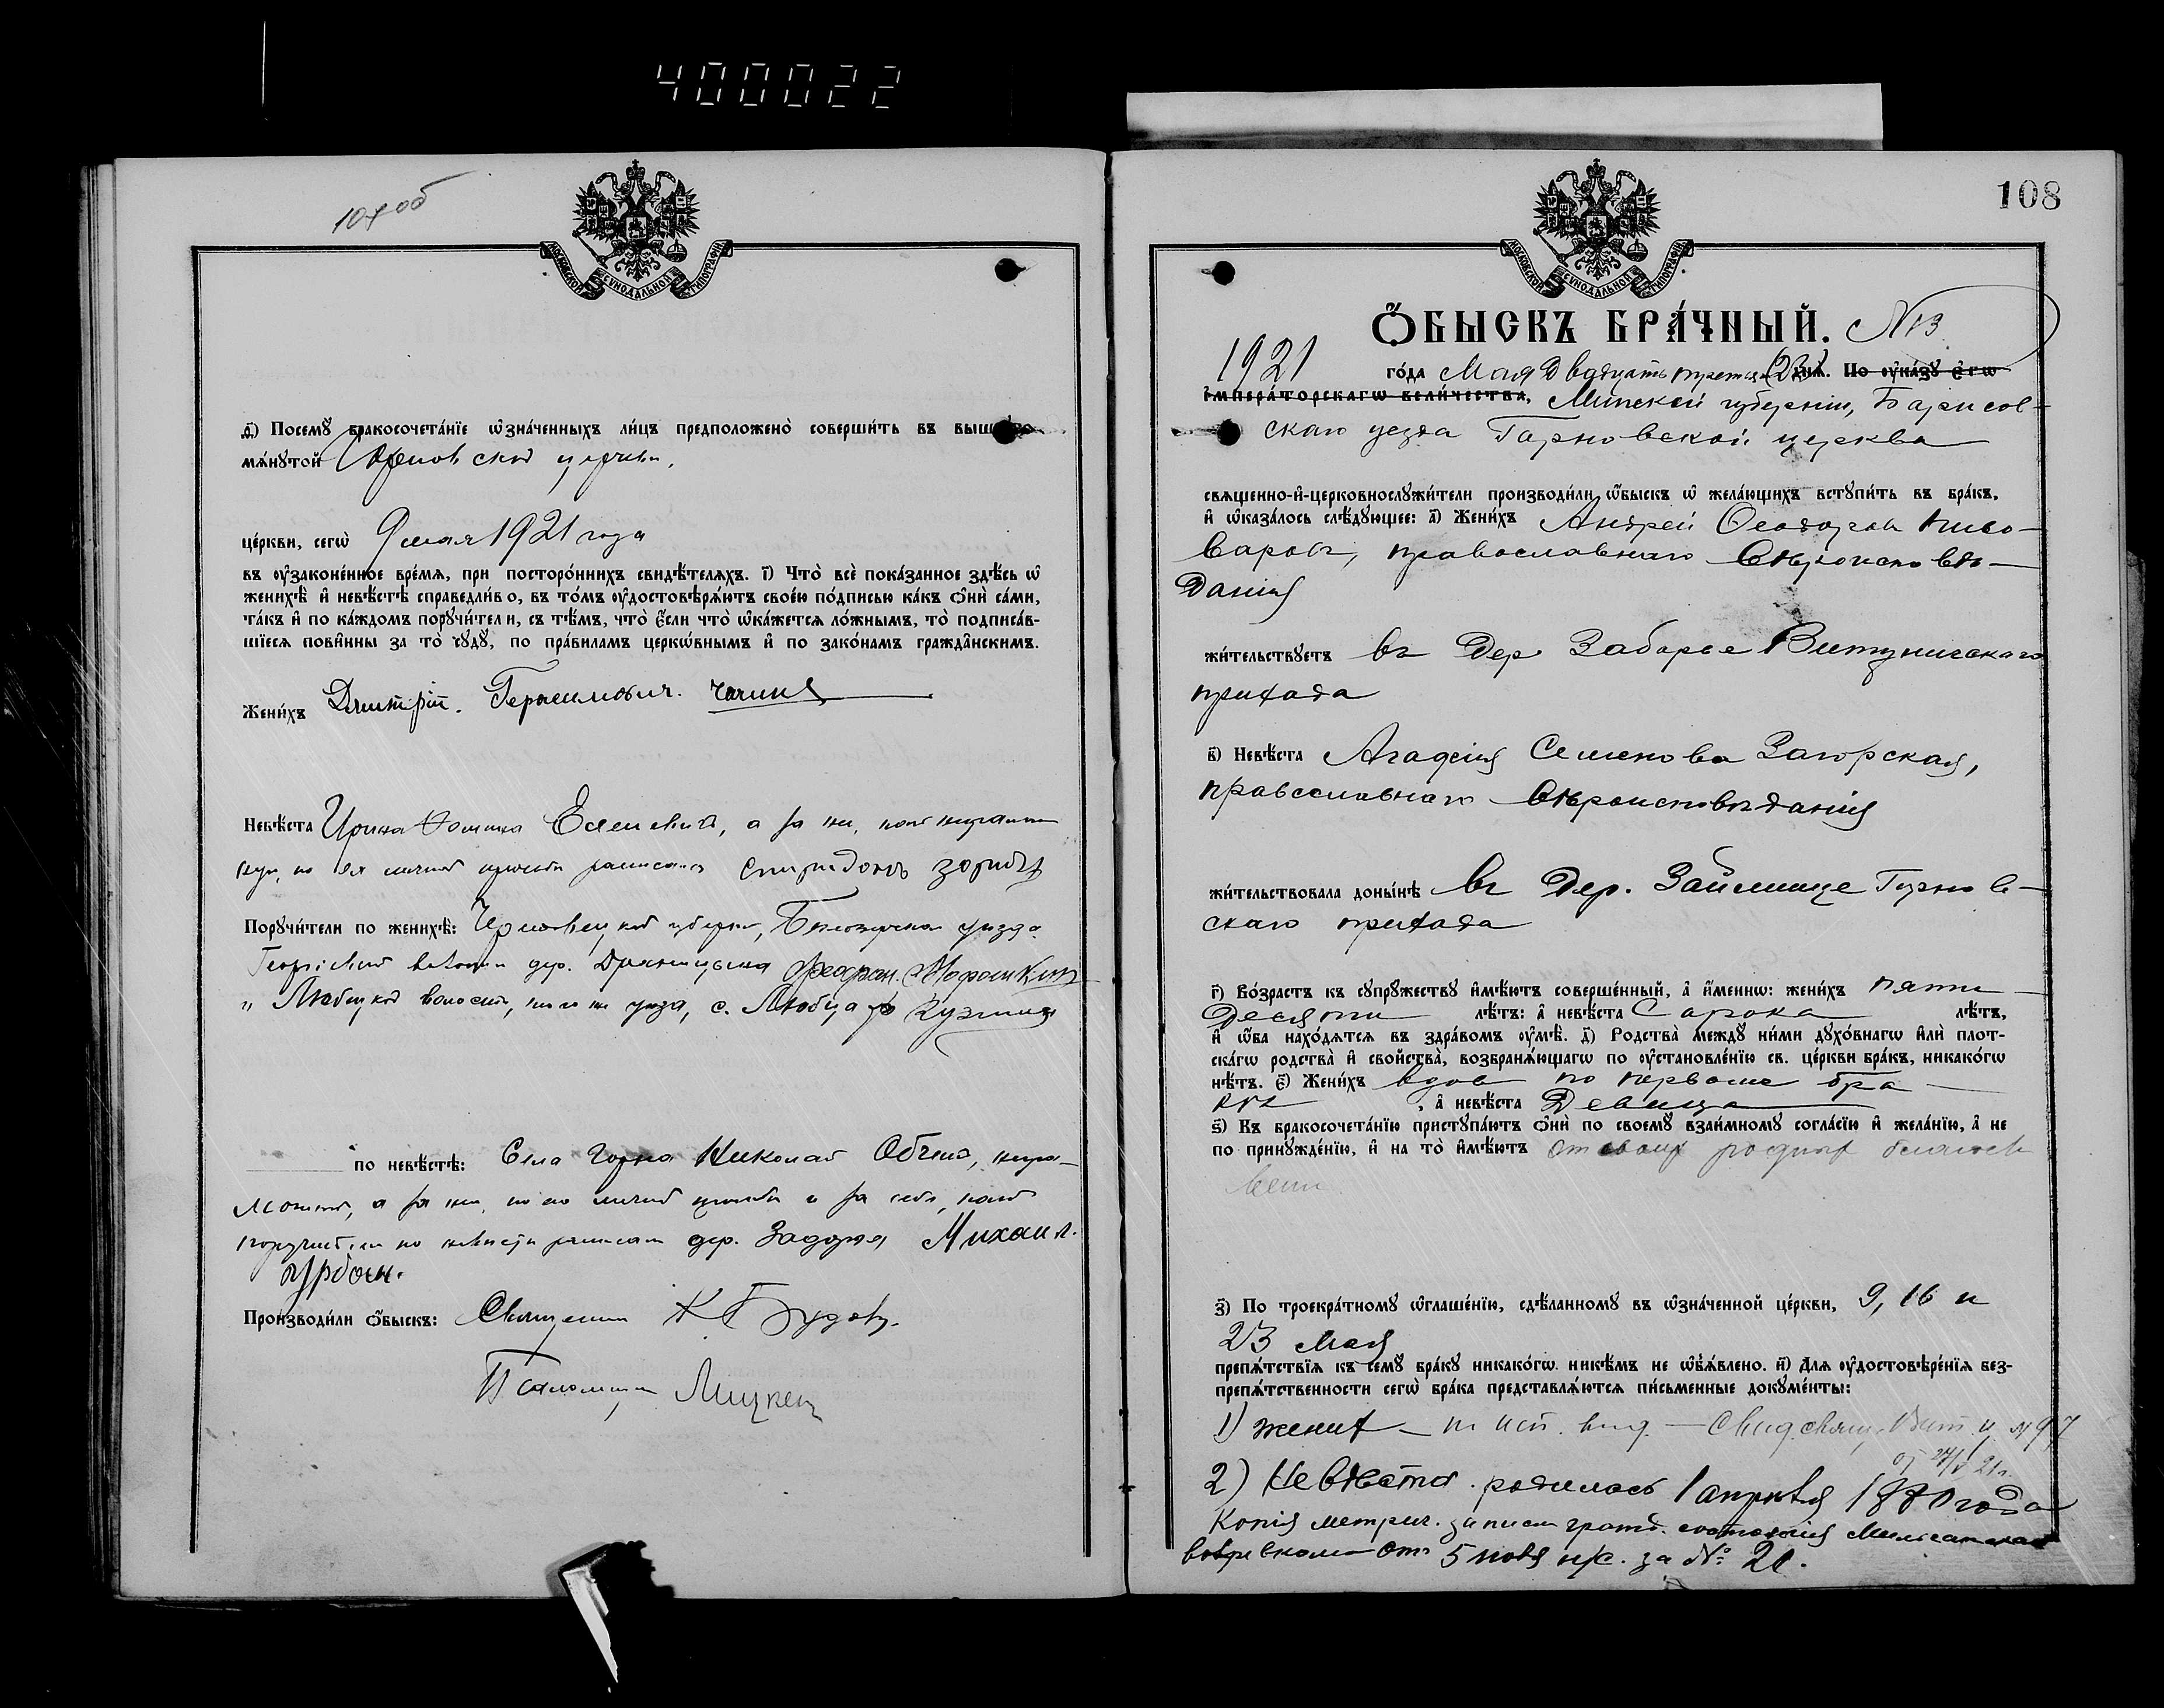 400022
107об
МОСКОВСКОЙ СѴНОДАЛЬНОЙ ТИПОГРАФІИ
ѳ҃) Посемꙋ бракосочета́нїе ѡ҆зна́ченныхъ ли́цъ предположено̀ соверши́ть въ вышеꙋпо-
мѧ́нꙋтой церкви,
це́ркви, сегѡ̀ 9 мая 1921 года
въ ѹ҆законе́нное вре́мѧ, при посторо́ннихъ свидѣ́телѧхъ. і҃) Что̀ всѐ пока́занное здѣ́сь ѡ҆
женихѣ̀ и҆ невѣ́стѣ справедли́во, въ то́мъ ѹ҆достовѣрѧ́ютъ свое́ю по́дписью ка́къ ѻ҆нѝ са́ми,
та́къ и҆ по ка́ждомъ порꙋчи́тели, съ тѣ́мъ, что̀ є҆́сли что̀ ѡ҆ка́жетсѧ ло́жнымъ, то̀ подписа́в-
шїесѧ пови́нны за то̀ сꙋдꙋ̀, по пра́виламъ церкѡ́внымъ и҆ по зако́намъ гражда̂нскимъ.
Жени́хъ Дмитрій. Герасимович.
Невѣ́ста Ирина Фомина а за ни,
кую, по ея личной просьбѣ расписался Спиридонъ
Порꙋчи́тели по женихѣ̀: губерніи, уѣзда
Георгіевской волости дер.
" Любецкой волости, уѣзда, с. Любца Кузмин
по невѣ́стѣ: Села Горна Николай негра-
мотный, а за ни, по его личной просьбѣ и за себя,
поручителя по невѣстѣ расписался дер. Задорья Михаил.
Курбан.
Производи́ли ѻ҆́быскъ: Священник К
Псаломщик Лицкев
МОСКОВСКОЙ СѴНОДАЛЬНОЙ ТИПОГРАФІИ
108
Ѻ҆́БЫСКЪ БРА́ЧНЫЙ. N 13
1921 го́да Мая двадцать третья (23) днѧ̀. По ѹ҆ка́зꙋ є҆гѡ̀
і҆мпера́торскагѡ вели́чества, Минской губерніи, Борисов-
скаго уезда Горновской церква
свѧщенно-и҆-церковнослꙋжи́тели производи́ли ѻ҆́быскъ ѡ҆ жела́ющихъ встꙋпи́ть въ бра́къ,
и҆ ѡ҆каза́лось слѣ́дꙋющее: а҃) Жени́хъ Андрей Феодоров Пиво-
варовъ, православнаго вѣроисповѣ-
данія
жи́тельствꙋетъ въ дер. Заборье Витуничскаго
прихода
в҃) Невѣ́ста Агафія Семенова Загорская,
православнаго вѣроисповѣданія
жи́тельствовала доны́нѣ въ дер. Займище Горнов-
скаго прихода
г҃) Во́зрастъ къ сꙋпрꙋ́жествꙋ и҆мѣ́ютъ соверше́нный, а҆ и҆́меннѡ: жени́хъ пяти-
десяти лѣ́тъ: а҆ невѣ́ста Сарока лѣ́тъ,
и҆ ѻ҆́ба нахо́дѧтсѧ въ здра́вомъ ѹ҆мѣ̀. д҃) Родства̀ междꙋ̀ ни́ми дꙋхо́внагѡ и҆лѝ плот-
ска́гѡ родства̀ и҆ свойства̀, возбранѧ́ющагѡ по ѹ҆становле́нїю св. це́ркви бра́къ, никако́гѡ
нѣ́тъ. є҃) Жени́хъ вдов по первоме бра-
кѣ, а҆ невѣ́ста Девица
ѕ҃) Къ бракосочета́нїю пристꙋпа́ютъ ѻ҆нѝ по своемꙋ̀ взаи́мномꙋ согла́сїю и҆ жела́нїю, а҆ не
по принꙋжде́нїю, и҆ на то̀ и҆мѣ́ютъ от своих родных благосло-
вени
з҃) По троекра́тномꙋ ѡ҆глаше́нїю, сдѣ́ланномꙋ въ ѡ҆зна́ченной це́ркви, 9, 16 и
23 мая
препѧ́тствїѧ къ семꙋ̀ бра́кꙋ никако́гѡ никѣ́мъ не ѡ҆б̾ѧ́влено. и҃) Длѧ ѹ҆достовѣре́нїѧ без-
препѧ́тственности сегѡ̀ бра́ка представлѧ́ютсѧ пи́сьменные докꙋме́нты:
1) жених – по исп. вид. – Свид. свящ. Вит. ц. № 97
от 24/V 21 г.
2) Невѣста родилась 1 апрѣля 1880 года
Копія метрич. записи гражд. состоянія
от 5 ноя н/с. за № 20.